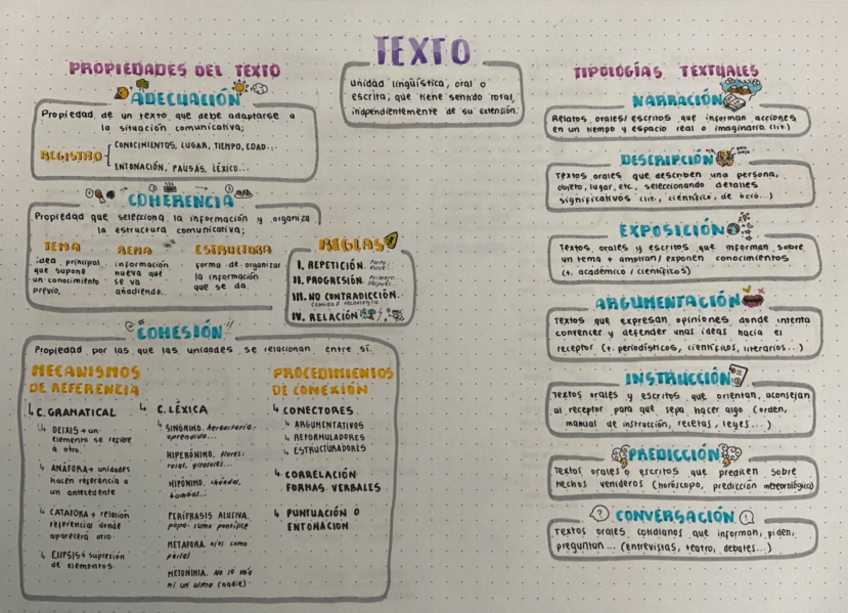 TEXTO
unidad lingüística, oral o
escrita, que tiene sentido total,
independientemente de su extensión.
PROPIEDADES DEL TEXTO
ADECUACIÓN
Propiedad de un texto que debe adaptarse a
la situación comunicativa;
REGISTRO
CONOCIMIENTOS, LUGAR, TIEMPO, EDAD...
ENTONACIÓN, PAUSAS, LÉXICO...
COHERENCIA
Propiedad que selecciona la información y organiza
la estructura comunicativa;
TEMA
idea principal
que supone
un conocimiento
previo.
REMA
información
nueva que
se va
añadiendo.
ESTRUCTURA
forma de organizar
la información
que se da.
REGLAS
I. REPETICIÓN.
II. PROGRESIÓN.
III. NO CONTRADICCIÓN.
IV. RELACIÓN
COHESIÓN
Propiedad por las que las unidades se relacionan entre sí.
MECANISMOS
DE REFERENCIA
C. GRAMATICAL
DEIXIS → un
elemento se refiere
a otro.
ANÁFORA → unidades
hacen referencia a
un antecedente
CATÁFORA → relación
referencial donde
aparecerá otro.
ELIPSIS → supresión
de elementos.
C. LÉXICA
SINÓNIMO.
HIPERÓNIMO. flores:
rosal, girasoles...
HIPÓNIMO. chándal,
PERÍFRASIS ALUSIVA.
papa: sumo pontífice
METÁFORA. ojos como
perlas
METONIMIA. No se
ni un alma (nadie)
PROCEDIMIENTOS
DE CONEXIÓN
CONECTORES
ARGUMENTATIVOS
REFORMULADORES
ESTRUCTURADORES
CORRELACIÓN
FORMAS VERBALES
PUNTUACIÓN O
ENTONACIÓN
TIPOLOGÍAS TEXTUALES
NARRACIÓN
Relatos orales/escritos que informan acciones
en un tiempo y espacio real o imaginario (lit.)
DESCRIPCIÓN
Textos orales que describen una persona,
objeto, lugar, etc, seleccionando detalles
significativos (lit., científico, de ocio...)
EXPOSICIÓN
Textos orales y escritos que informan sobre
un tema + amplian/exponen conocimientos
(t. académico/científicos)
ARGUMENTACIÓN
Textos que expresan opiniones donde intenta
convencer y defender unas ideas hacia el
receptor (t. periodísticos, científicos, literarios...)
INSTRUCCIÓN
Textos orales y escritos que orientan, aconsejan
al receptor para que sepa hacer algo (orden,
manual de instrucción, recetas, leyes...)
PREDICCIÓN
Textos orales o escritos que predicen sobre
hechos venideros (horóscopo, predicción meteorológica)
CONVERSACIÓN
Textos orales cotidianos que informan, piden,
preguntan... (entrevistas, teatro, debates...)